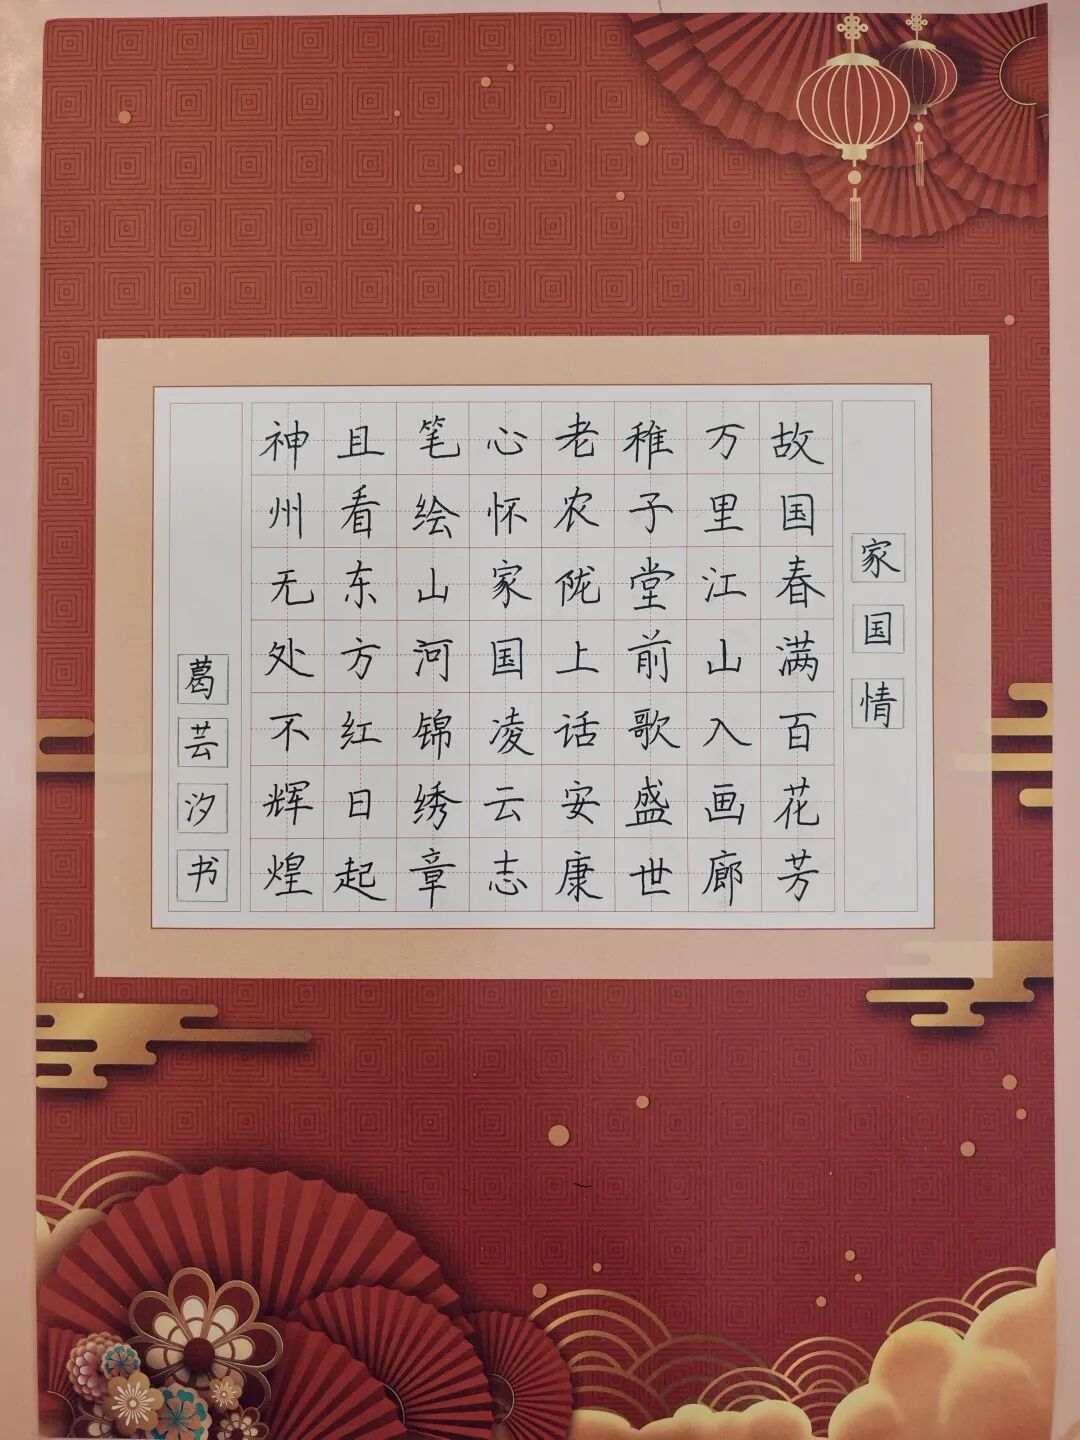 家国情
故国春满百花芳
万里江山入画廊
稚子堂前歌盛世
老农陇上话安康
心怀家国凌云志
笔绘山河锦绣章
且看东方红日起
神州无处不辉煌
葛芸汐书